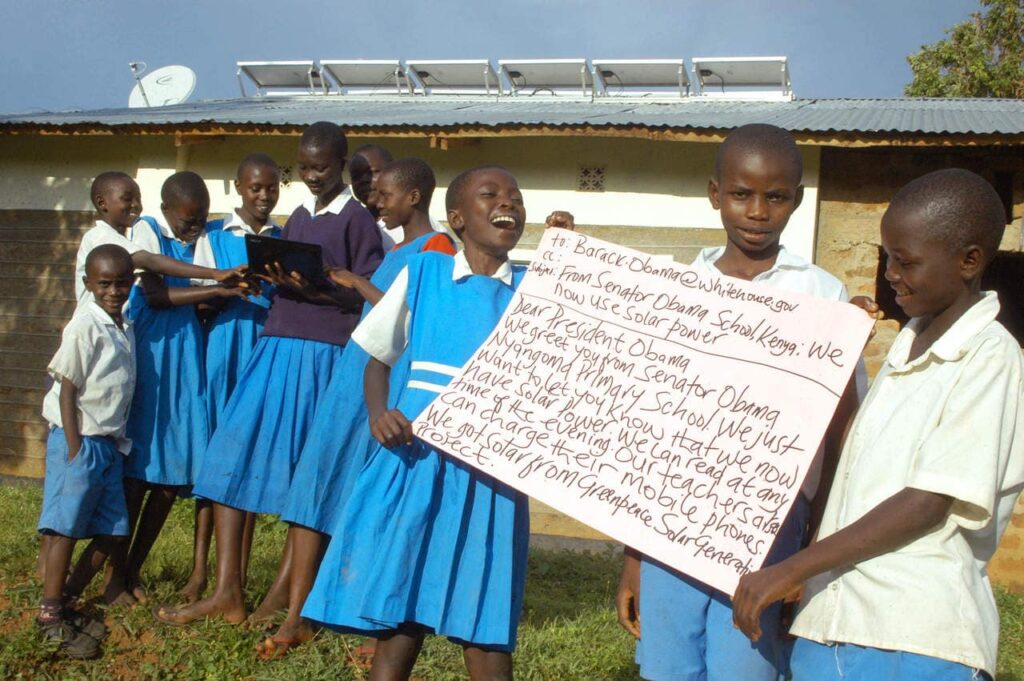 to: Barack.Obama@whitehouse.gov
cc:
Subject: From Senator Obama School, Kenya: We
now use solar power
Dear President Obama
We greet you from Senator Obama
Nyangoma Primary School. We just
Want to let you know that we now
have Solar Power. We can read at any
time of the evening. Our teachers also
can charge their mobile phones.
We got solar from Greenpeace Solar Generation
Project.